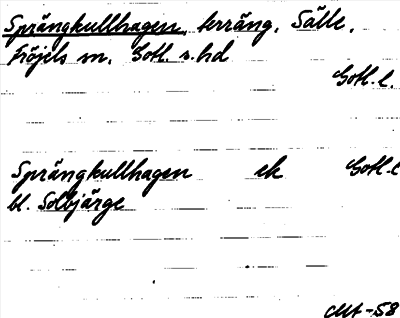 Sprängkullhagen, terräng, Sälle,
Fröjels sn, Gotl. s. hd
Gotl. l.
Sprängkullhagen ek Gotl. l
bl. Solbjärge
Mt -58